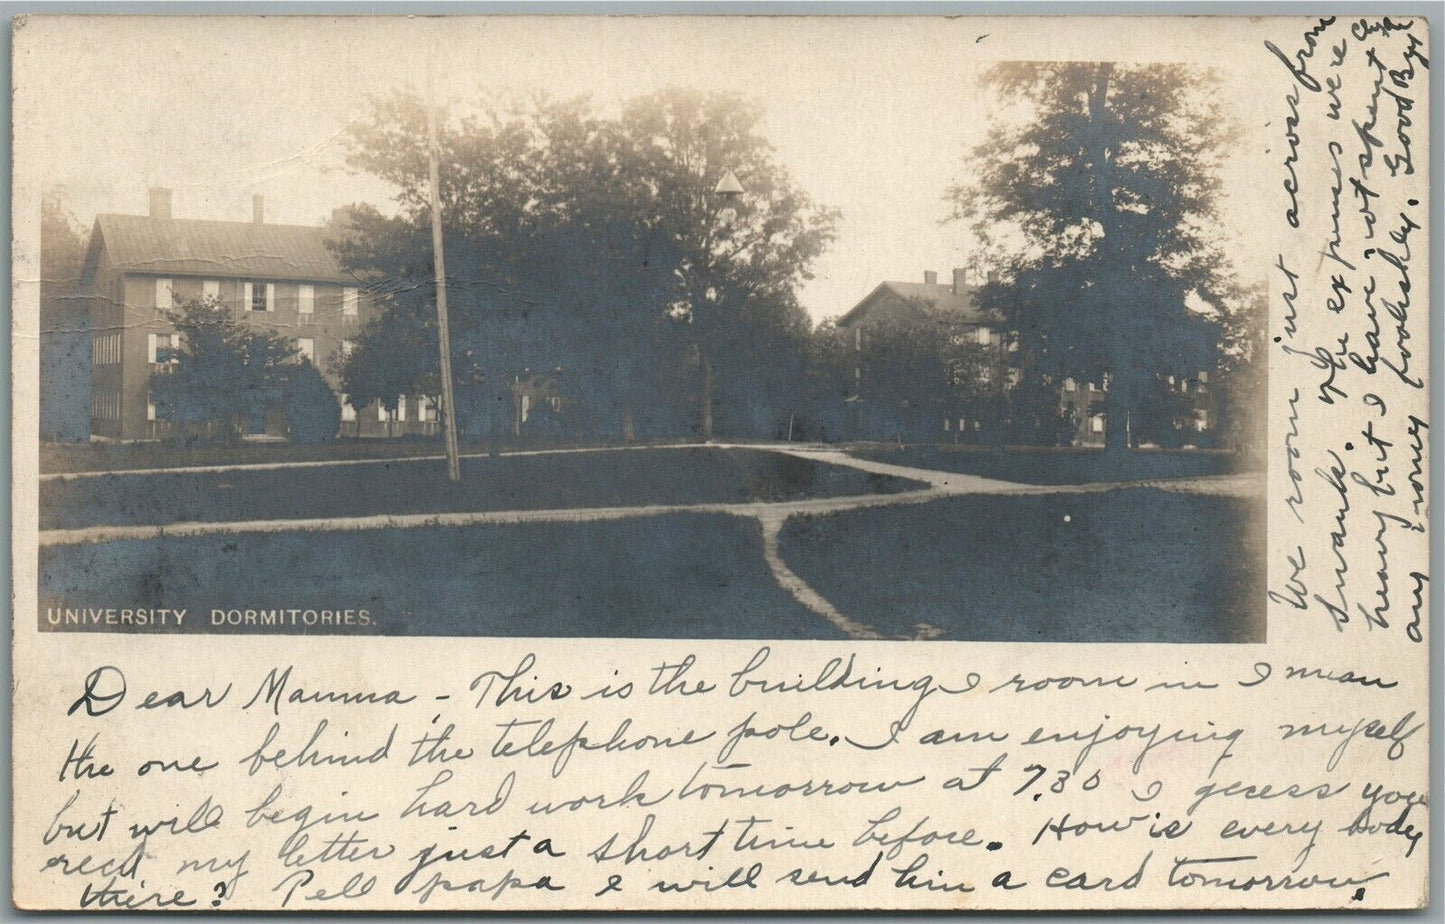 UNIVERSITY DORMITORIES.
Dear Mamma - This is the building I room in I mean
the one behind the telephone pole. I am enjoying myself
but will begin hard work tomorrow at 7.30 I guess you
recd my letter just a short time before. How is every body
there? Tell papa I will send him a card tomorrow.
We room just across from
Swank. My expenses were
heavy but I have not spent
any money foolishly. Good Bye